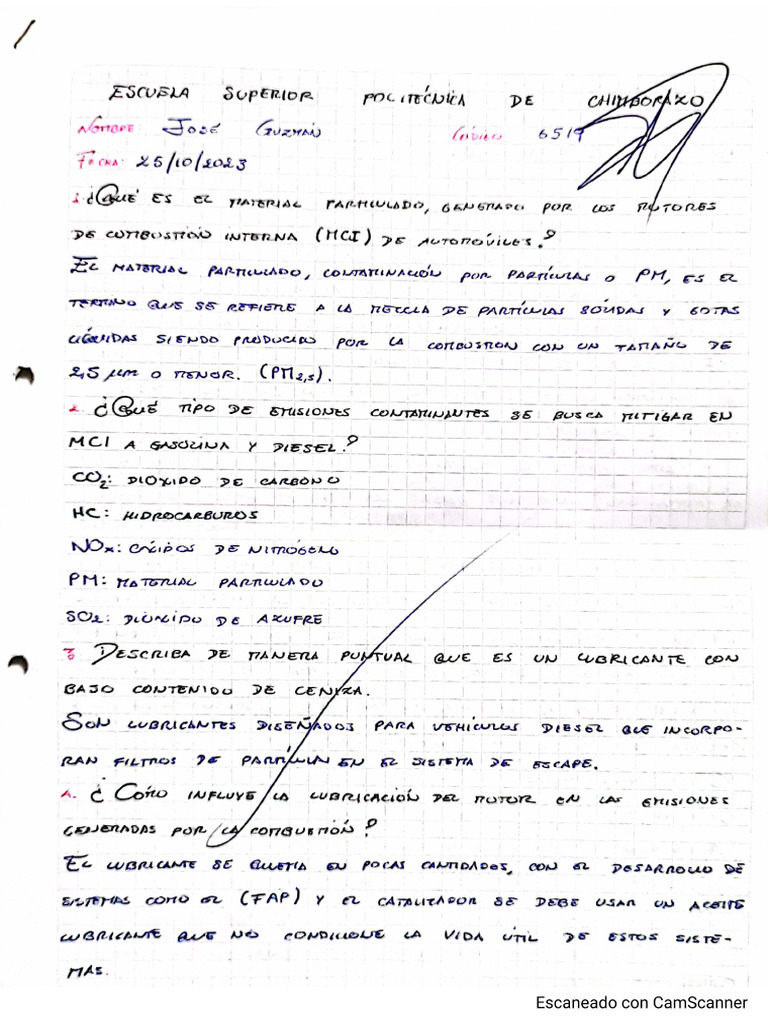 ESCUELA SUPERIOR POLITÉCNICA DE CHIMBORAZO
NOMBRE: JOSÉ GUZMÁN CÓDIGO 6519
FECHA: 25/10/2023
1. ¿QUÉ ES EL MATERIAL PARTICULADO, GENERADO POR LOS MOTORES
DE COMBUSTIÓN INTERNA (MCI) DE AUTOMÓVILES?
EL MATERIAL PARTICULADO, CONTAMINACIÓN POR PARTÍCULAS O PM, ES EL
TERMINO QUE SE REFIERE A LA MEZCLA DE PARTÍCULAS SÓLIDAS Y GOTAS
LÍQUIDAS SIENDO PRODUCIDO POR LA COMBUSTION CON UN TAMAÑO DE
2,5 μm O MENOR. (PM2,5).
2. ¿QUÉ TIPO DE EMISIONES CONTAMINANTES SE BUSCA MITIGAR EN
MCI A GASOLINA Y DIESEL?
CO2: DIOXIDO DE CARBONO
HC: HIDROCARBUROS
NOx: OXÍDOS DE NITRÓGENO
PM: MATERIAL PARTICULADO
SO2: DIOXIDO DE AZUFRE
3. DESCRIBA DE MANERA PUNTUAL QUE ES UN LUBRICANTE CON
BAJO CONTENIDO DE CENIZA.
SON LUBRICANTES DISEÑADOS PARA VEHÍCULOS DIESEL QUE INCORPO-
RAN FILTROS DE PARTÍCULA EN EL SISTEMA DE ESCAPE.
4. ¿COMO INFLUYE LA LUBRICACIÓN DEL MOTOR EN LAS EMISIONES
GENERADAS POR LA COMBUSTIÓN?
EL LUBRICANTE SE QUEMA EN POCAS CANTIDADES, CON EL DESARROLLO DE
SISTEMAS COMO EL (FAP) Y EL CATALIZADOR SE DEBE USAR UN ACEITE
LUBRICANTE QUE NO CONDICIONE LA VIDA ÚTIL DE ESTOS SISTE-
MAS.
Escaneado con CamScanner